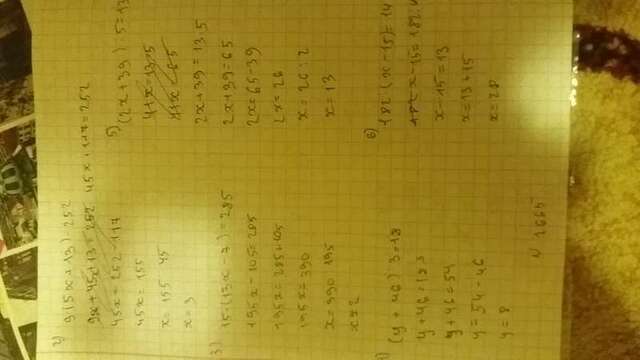 2)
9(5x+13)=252
9x+45x+13=252 45x+117=252
45x=252-117
45x=155
x=155 45
x=3
3)
15·(13x-7)=285
195x-105=285
195x=285+105
195x=390
x=390 195
x=2
4)
(y+46) 3=18
y+46=18 3
y+46=54
y=54-46
y=8
5)
(2x+39):5=13
4+x=13·5
4+x=65
2x+39=13·5
2x+39=65
2x=65-39
2x=26
x=26:2
x=13
6)
182:(x-15)=14
182 x-15=182:
x-15=13
x=13+15
x=28
N 1665